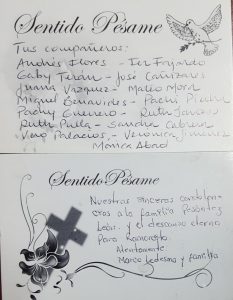 Sentido Pésame
Tus compañeros:
Andrés Flores - Fer Fajardo
Gaby Terán - José Cañizares
Juana Vazquez - Mateo Mora
Miguel Benavides - Pachi
Pachy Guerrero - Ruth
Ruth Pulla - Sandra Cabrera
Vero Palacios - Verónica Jiménez
Mónica Abad
Sentido Pésame
Nuestras sinceras condolen-
cias a la familia
León. y el descanso eterno
Para
Atentamente.
Marco Ledesma y familia